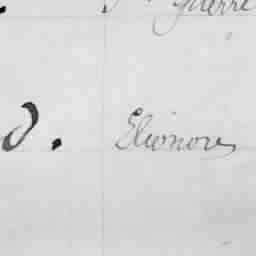 Guerre
d. Elionore